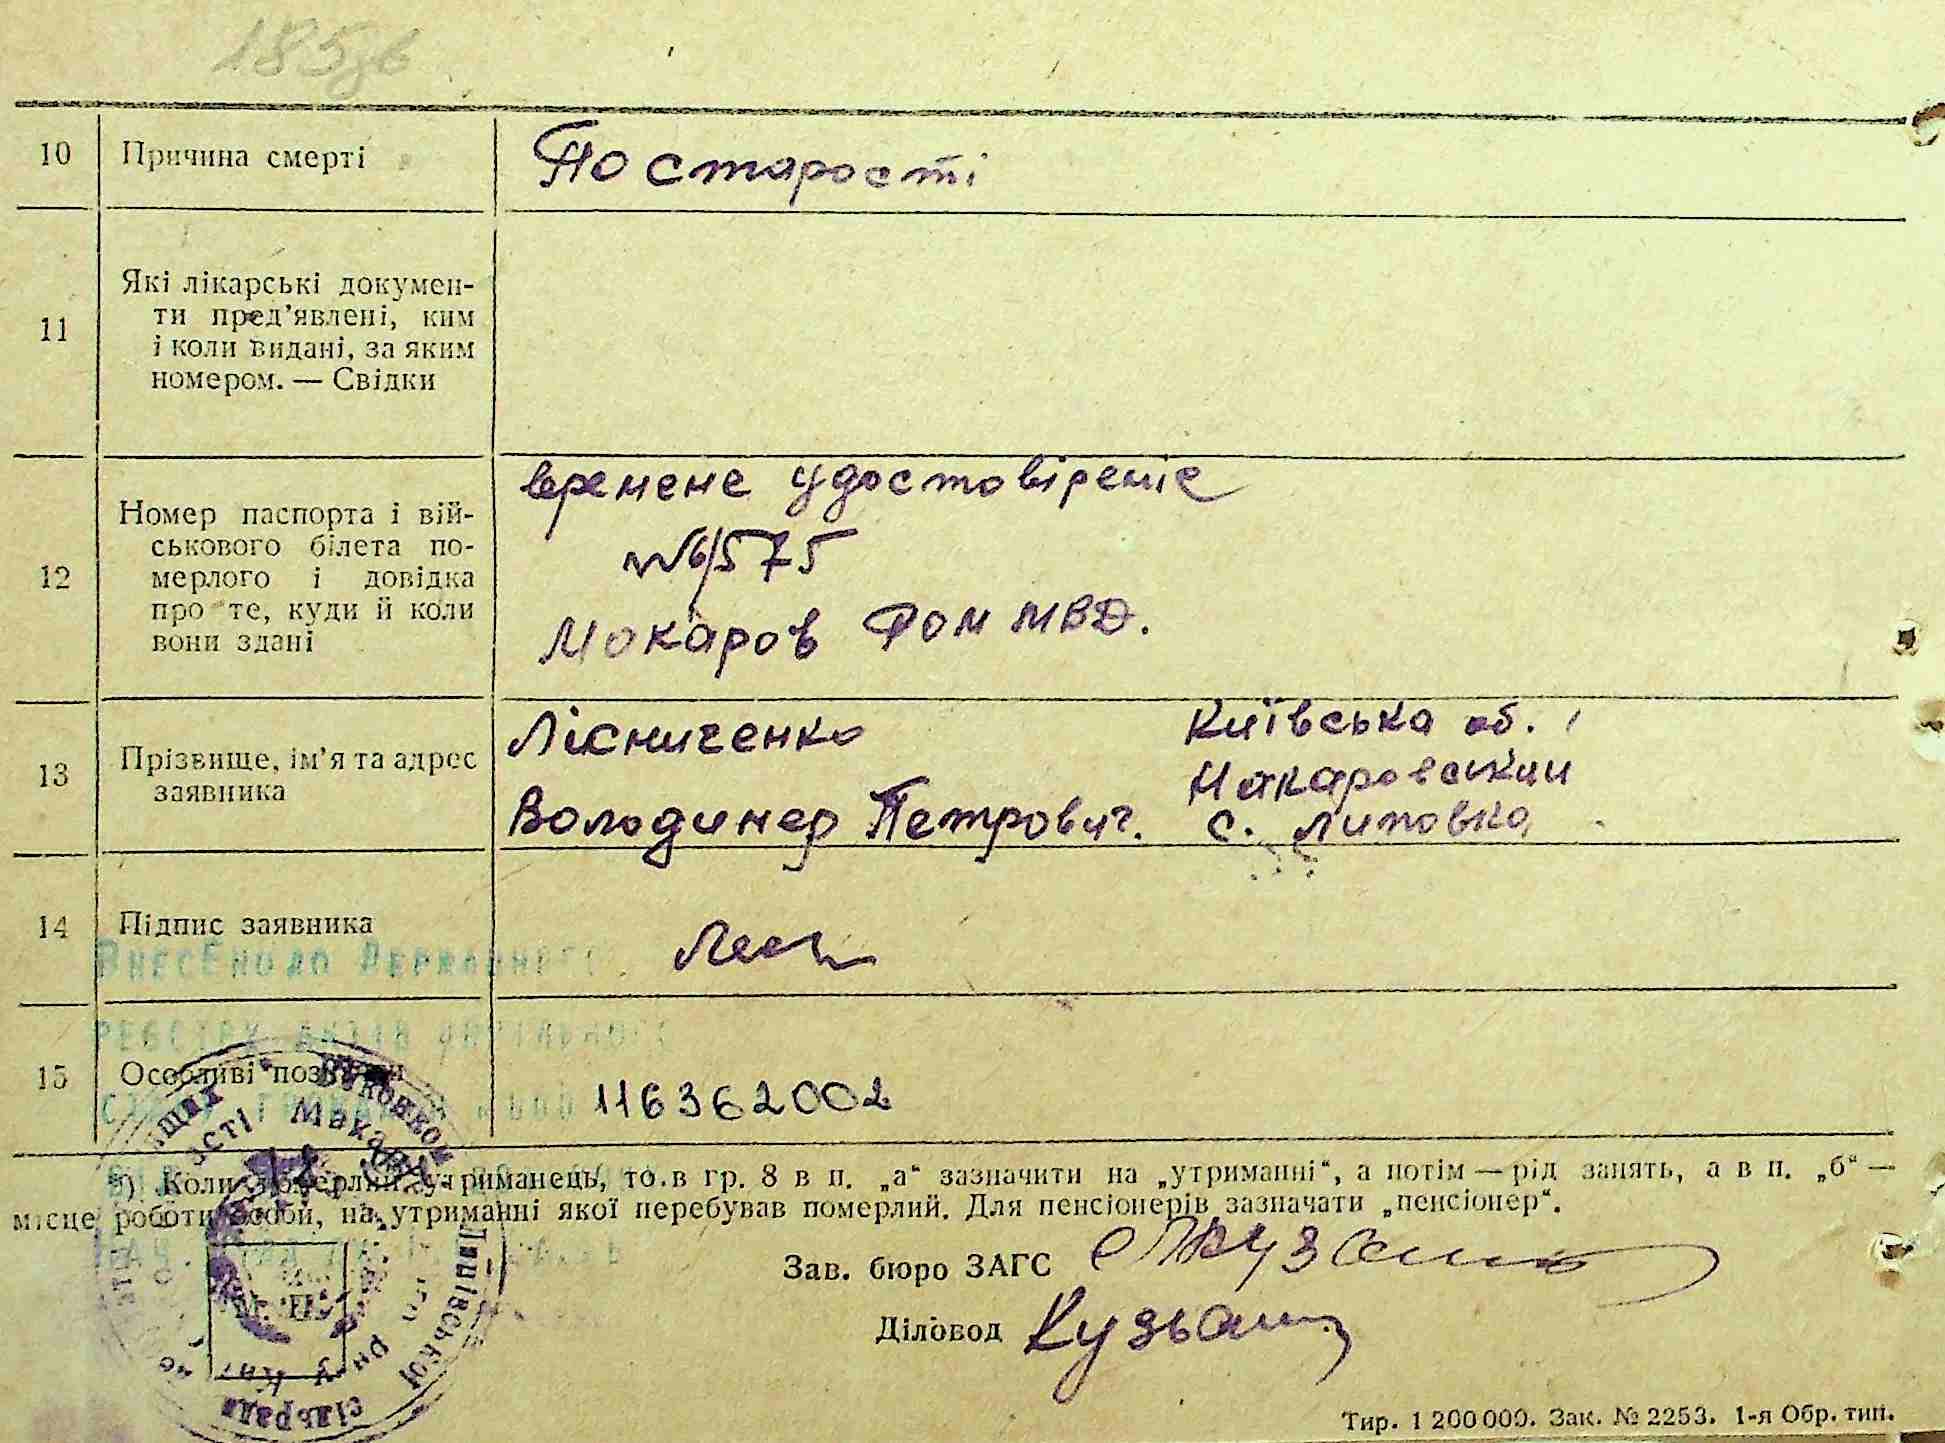 185зв
10 Причина смерті По старості
11 Які лікарські докумен-
ти пред’явлені, ким
і коли видані, за яким
номером. — Свідки
12 Номер паспорта і вій-
ськового білета по-
мерлого і довідка
про те, куди й коли
вони здані
времене удостовіреніе
№6/575
Мокаров РОМ МВД.
13 Прізвище, ім’я та адрес
заявника
Лісниченко
Володимер Петрович.
Київська об.
Макаровский
с. Липовка
14 Підпис заявника
Внесено до Державного
реєстру актів цивільного
15 Особливі позначки 116362002
*) Коли померлий утриманець, то в гр. 8 в п. „а“ зазначити на „утриманні“, а потім — рід занять, а в п. „б“ —
місце роботи особи, на утриманні якої перебував померлий. Для пенсіонерів зазначати „пенсіонер“.
Зав. бюро ЗАГС
Діловод
Липівської
сільрада
Тир. 1 200 000. Зак. № 2253. 1-я Обр. тип.